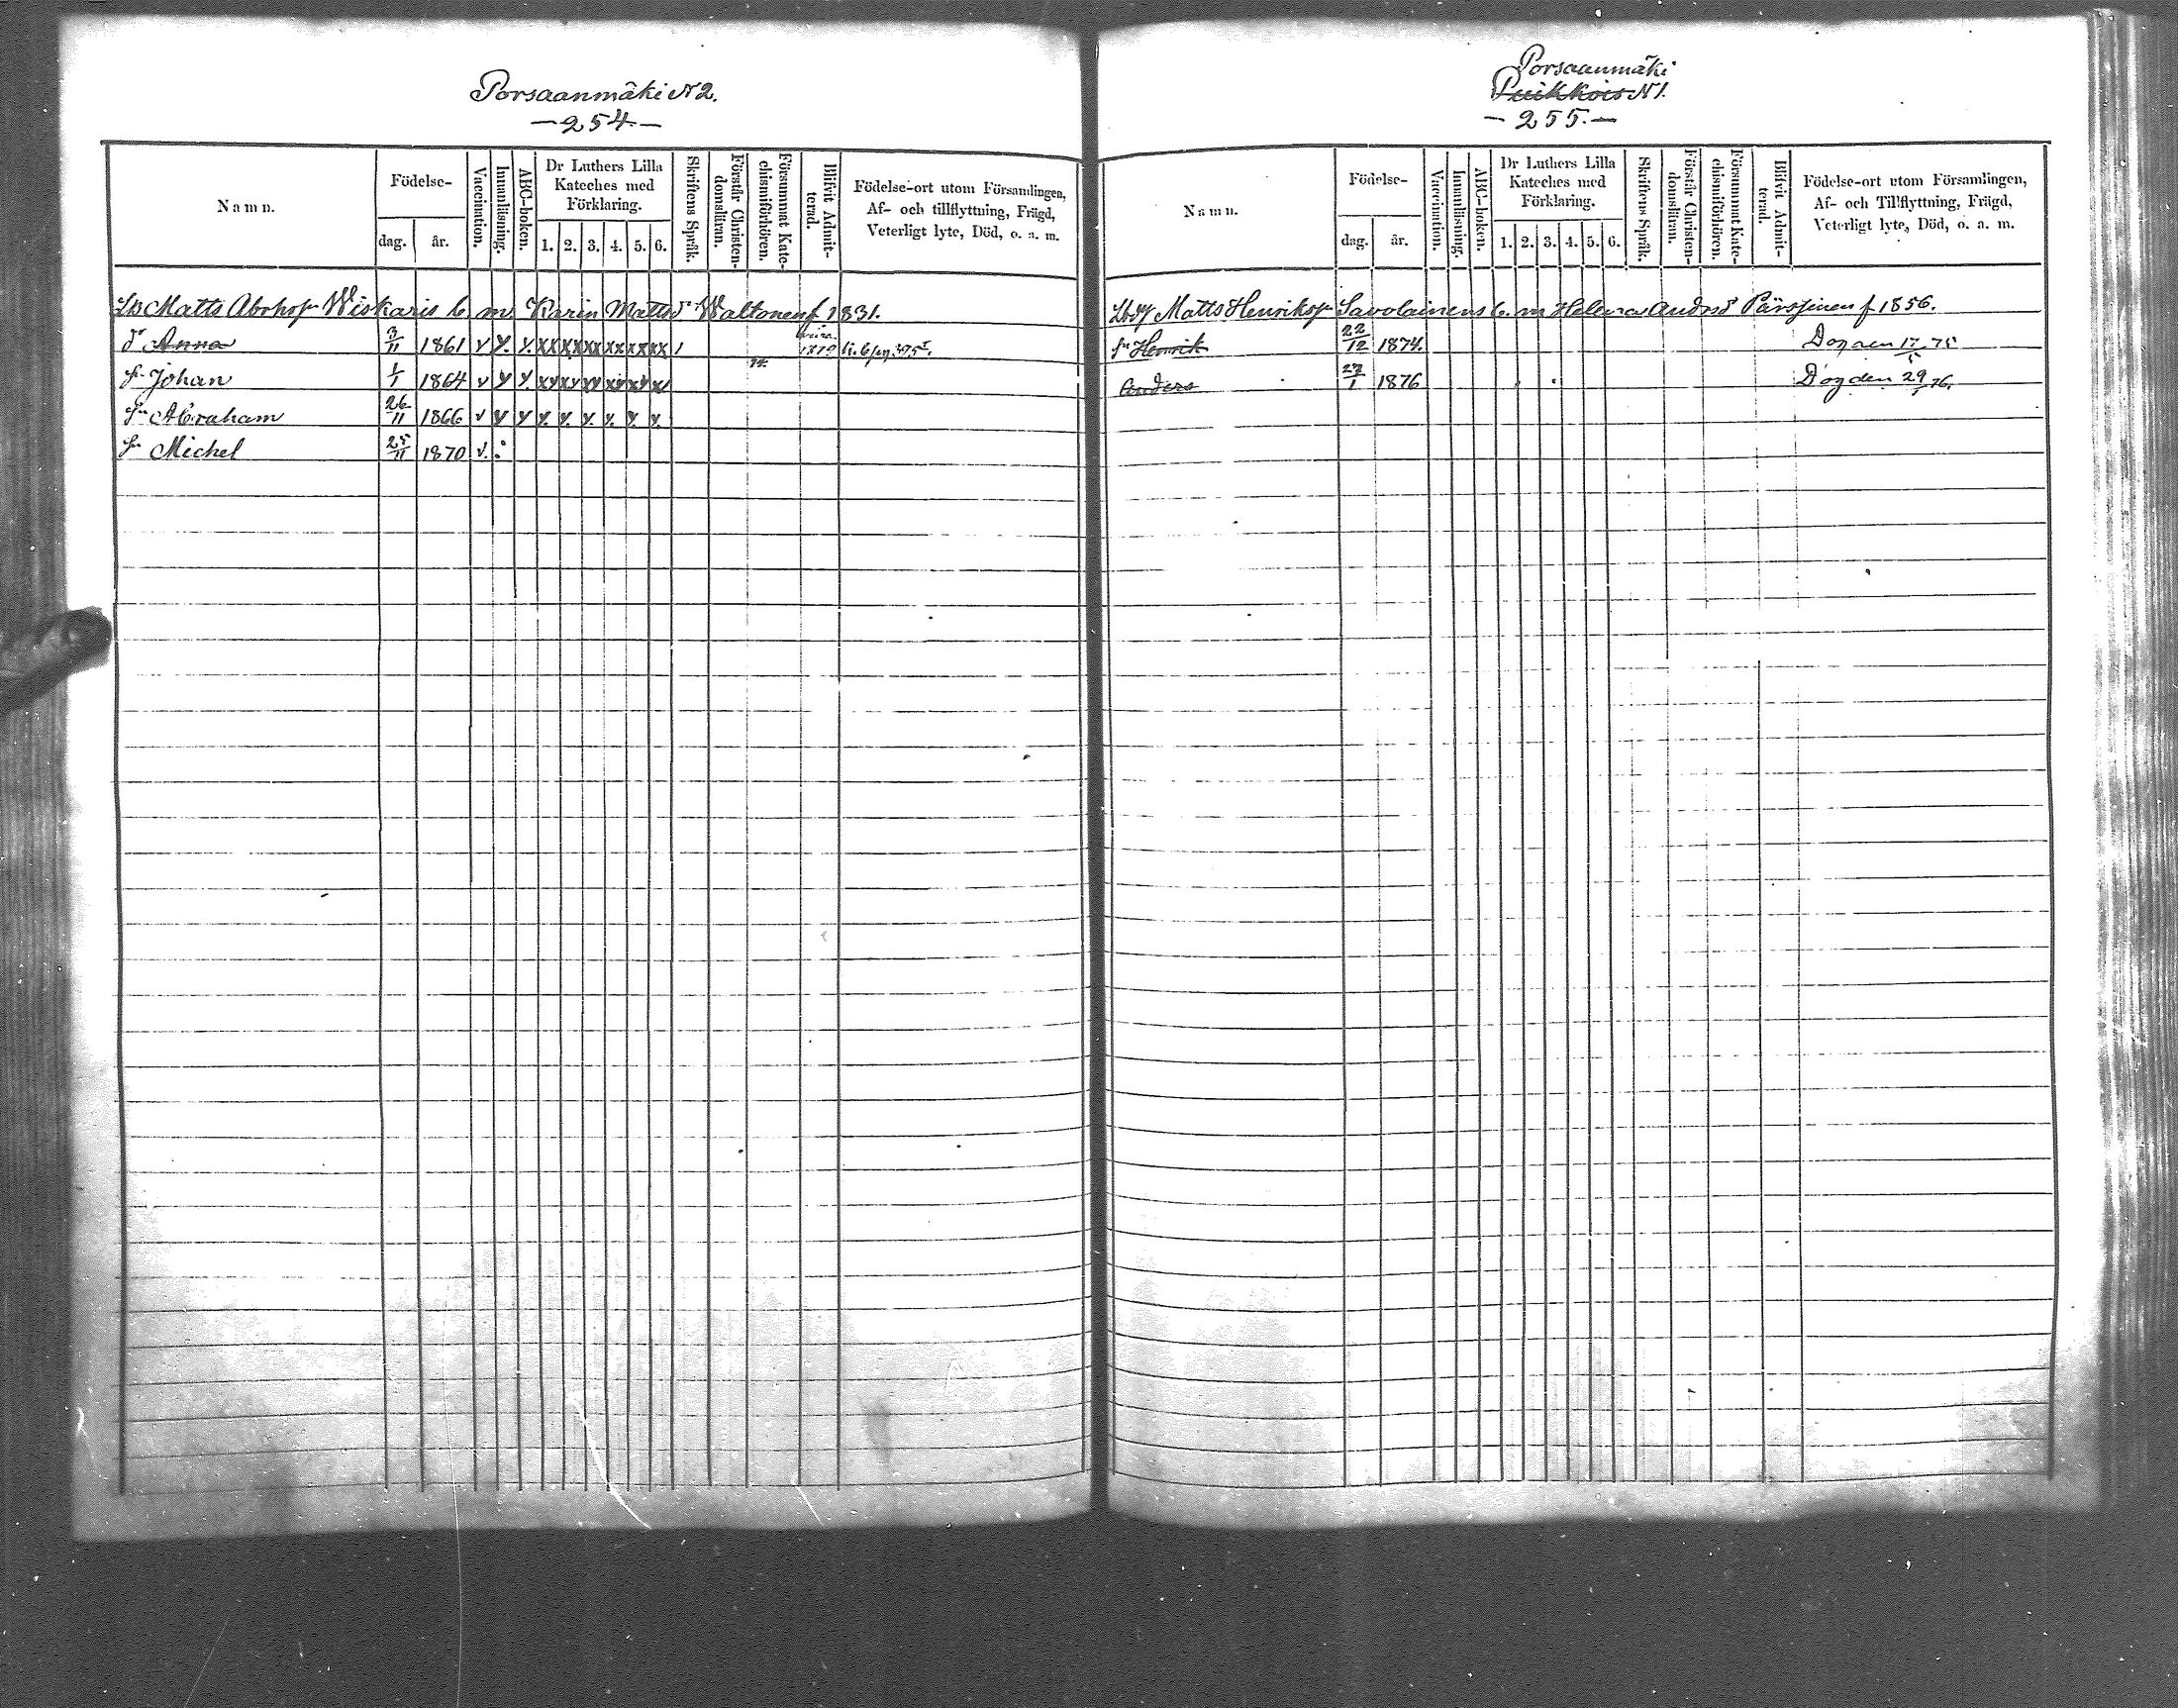 Porsaanmäki N2.
—254.—
Namn.
Födelse-
dag. år.
Vaccination.
Innanläsning.
ABC-boken.
Dr Luthers Lilla
Kateches med
Förklaring.
1. 2. 3. 4. 5. 6.
Skriftens Språk.
Förstår Christen-
domsläran.
Försummat Kate-
chismiförhören.
Blifvit Admit-
terad.
Födelse-ort utom Församlingen,
Af- och tillflyttning, Frägd,
Veterligt lyte, Död, o. a. m.
Matts Wiskaris b m Karin Matts d. Waltonen f 1831.
dr Anna 3/11 1861 v y. y. xx xx xx xx xx xx 1 1879
Johan 1/1 1864 v y y. xy xy xy xy xy
Sn Abraham 26/11 1866 v y y y. y. y. y. y. y.
Sn Michel 25/11 1870 v.
Porsaanmäki
Puikkois N1.
— 255.—
Namn.
Födelse-
dag. år.
Vaccination.
Innanläsning.
ABC-boken.
Dr Luthers Lilla
Kateches med
Förklaring.
1. 2. 3. 4. 5. 6.
Skriftens Språk.
Förstår Christen-
domsläran.
Försummat Kate-
chismiförhören.
Blifvit Admit-
terad.
Födelse-ort utom Församlingen,
Af- och Tillflyttning, Frägd,
Veterligt lyte, Död, o. a. m.
Matts Henriks Savolainens b. m Helena Pärssinen f 1856.
Sn Henrik 22/12 1874. Dog den 17/5 75
Anders 27/1 1876 Dog den 29 76.